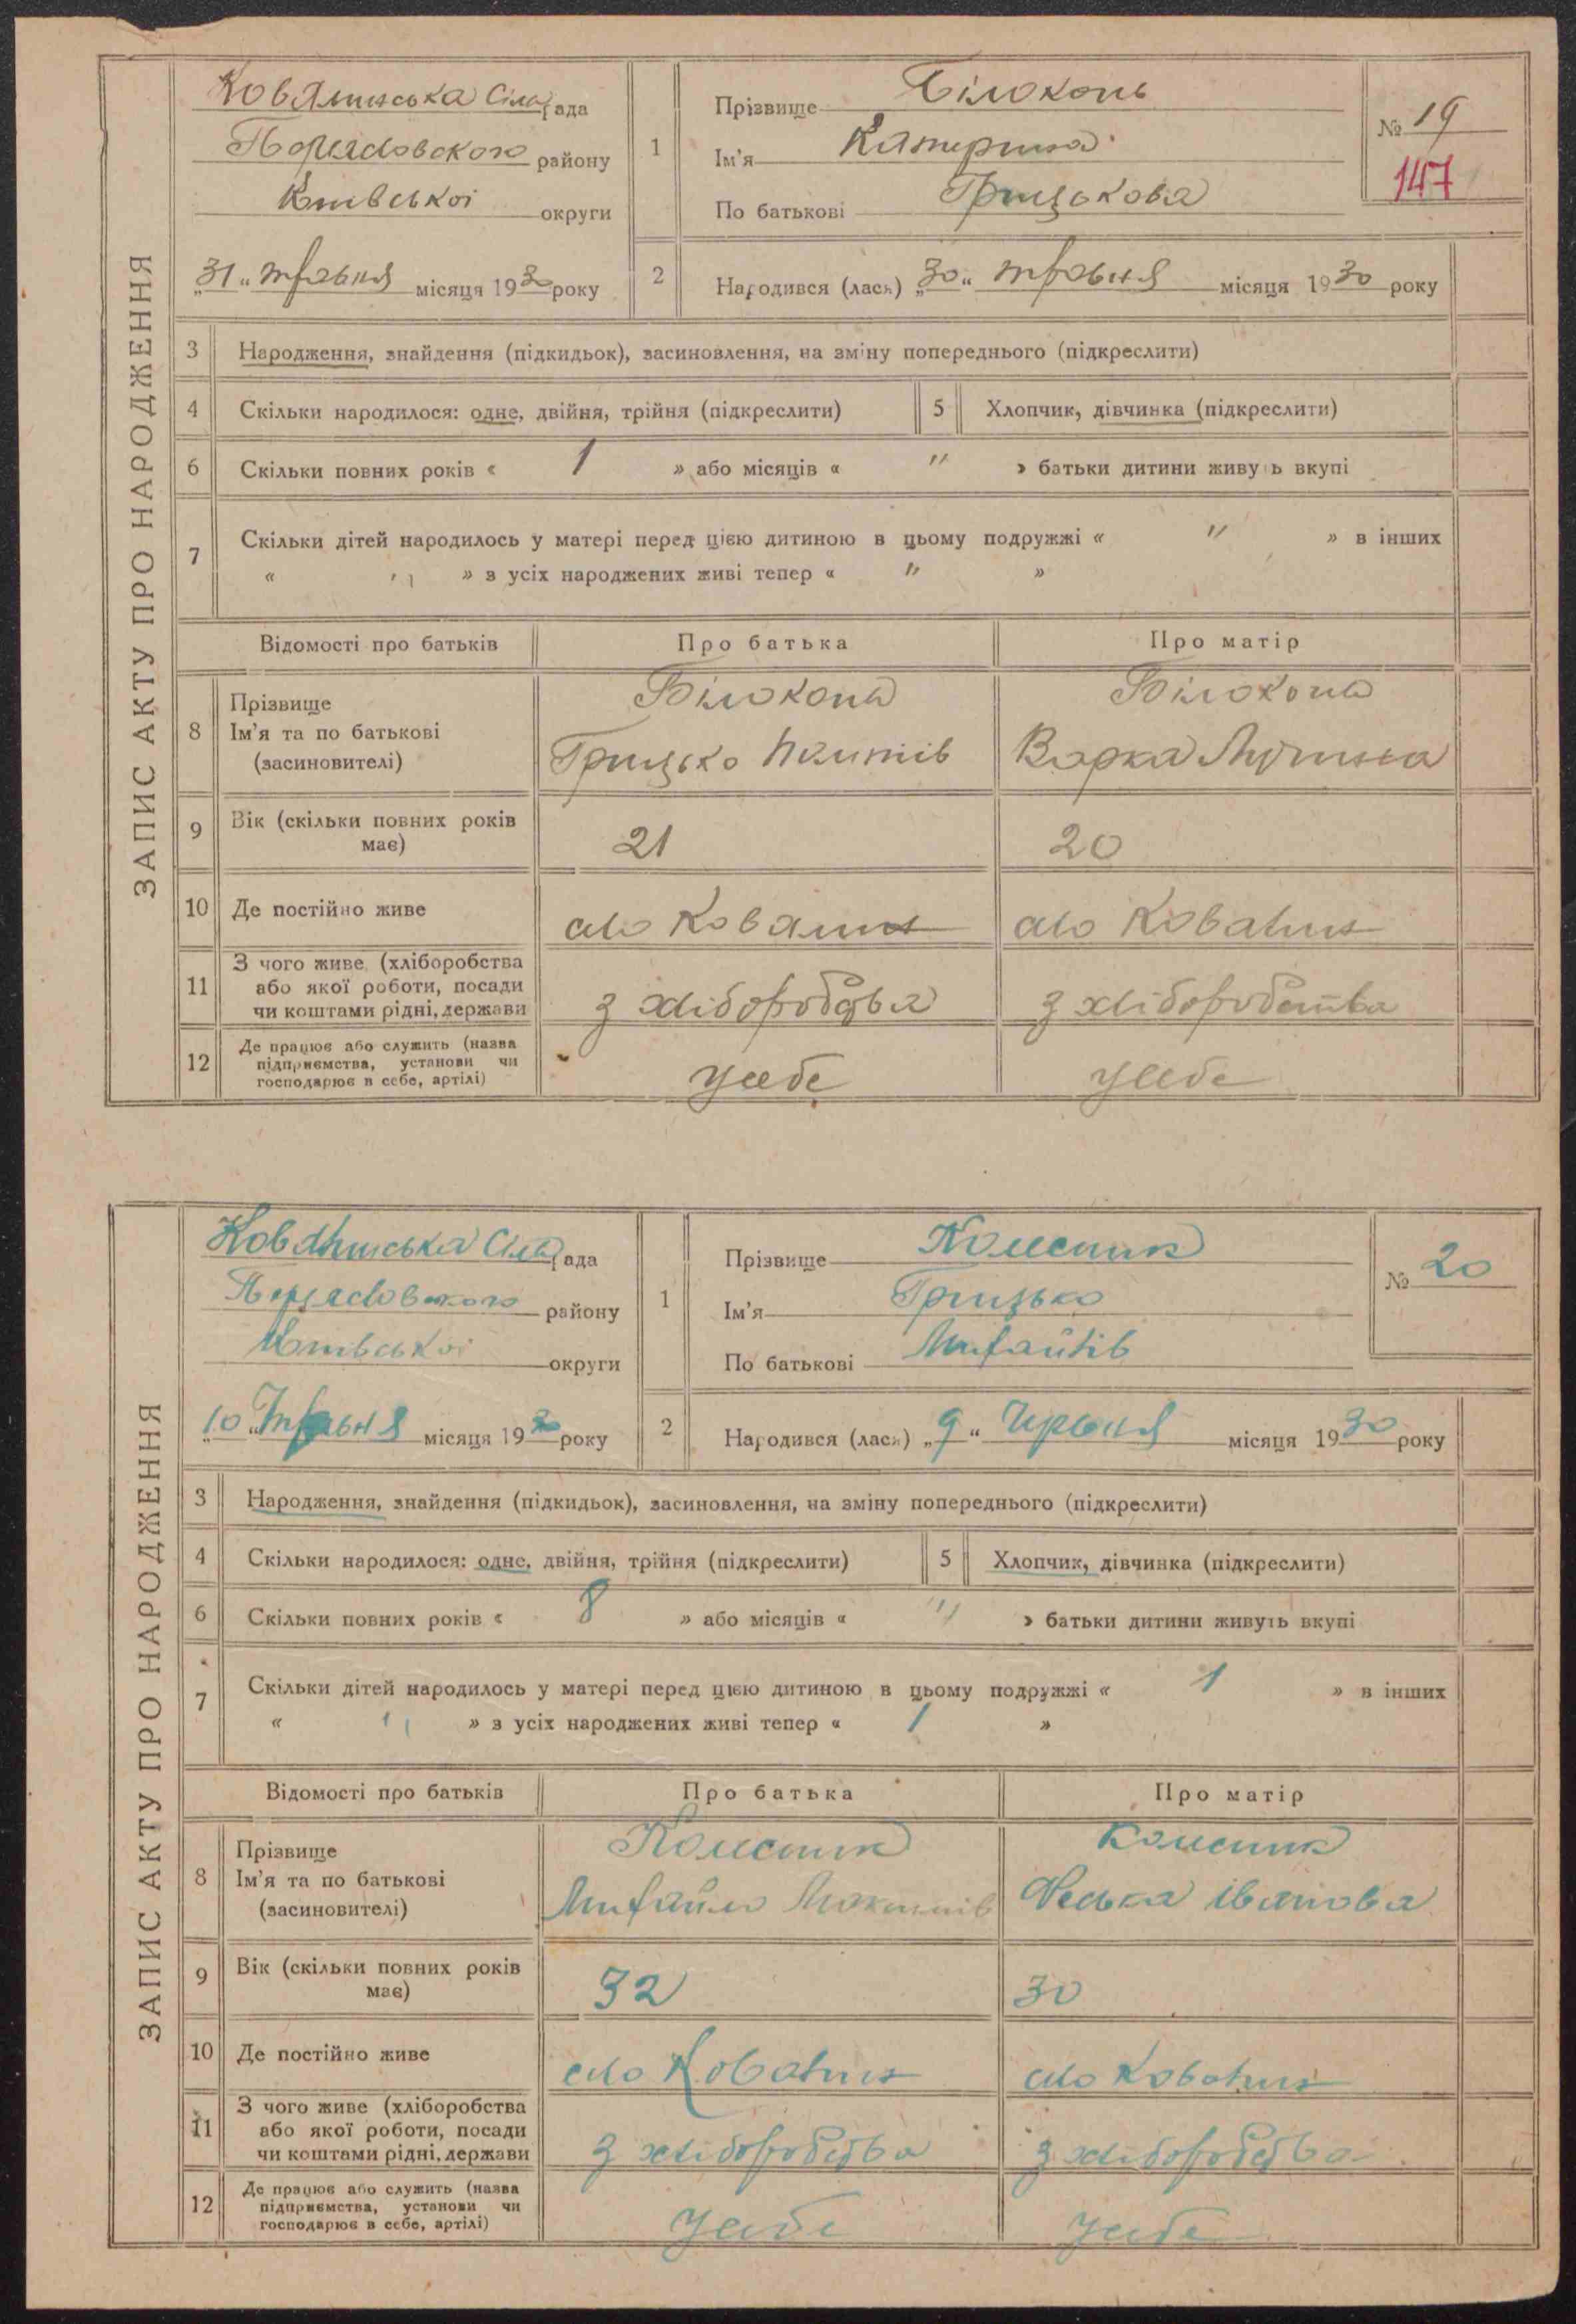 ЗАПИС АКТУ ПРО НАРОДЖЕННЯ
Ковалинська Сільрада
району
Київської округи
31 травня місяця 1930 року
1 Прізвище Білоконь
Ім'я Катерина
По батькові Грицькова
№ 19
147
2 Народився (лася) „30“ травня місяця 1930 року
3 Народження, знайдення (підкидьок), засиновлення, на зміну попереднього (підкреслити)
4 Скільки народилося: одне, двійня, трійня (підкреслити) 5 Хлопчик, дівчинка (підкреслити)
6 Скільки повних років « 1 » або місяців « " » батьки дитини живуть вкупі
7 Скільки дітей народилось у матері перед цією дитиною в цьому подружжі « " » в інших
« " » з усіх народжених живі тепер « " »
Відомості про батьків Про батька Про матір
8 Прізвище
Ім'я та по батькові
(засиновителі)
Білоконь
Грицько
Білоконь
Варка
9 Вік (скільки повних років має) 21 20
10 Де постійно живе село Ковалин село Ковалин
11 З чого живе (хліборобства
або якої роботи, посади
чи коштами рідні, держави
з хліборобства з хліборобства
12 Де працює або служить (назва
підприємства, установи чи
господарює в себе, артілі)
у себе у себе
ЗАПИС АКТУ ПРО НАРОДЖЕННЯ
Ковалинська Сільрада
району
Київської округи
„10“ травня місяця 1930 року
1 Прізвище Колесник
Ім'я Грицько
По батькові Михайлів
№ 20
2 Народився (лася) „9“ червня місяця 1930 року
3 Народження, знайдення (підкидьок), засиновлення, на зміну попереднього (підкреслити)
4 Скільки народилося: одне, двійня, трійня (підкреслити) 5 Хлопчик, дівчинка (підкреслити)
6 Скільки повних років « 8 » або місяців « " » батьки дитини живуть вкупі
7 Скільки дітей народилось у матері перед цією дитиною в цьому подружжі « 1 » в інших
« " » з усіх народжених живі тепер « 1 »
Відомості про батьків Про батька Про матір
8 Прізвище
Ім'я та по батькові
(засиновителі)
Колесник
Михайло
Колесник
Іванова
9 Вік (скільки повних років має) 32 30
10 Де постійно живе село Ковалин село Ковалин
11 З чого живе (хліборобства
або якої роботи, посади
чи коштами рідні, держави
з хліборобства з хліборобства
12 Де працює або служить (назва
підприємства, установи чи
господарює в себе, артілі)
у себе у себе